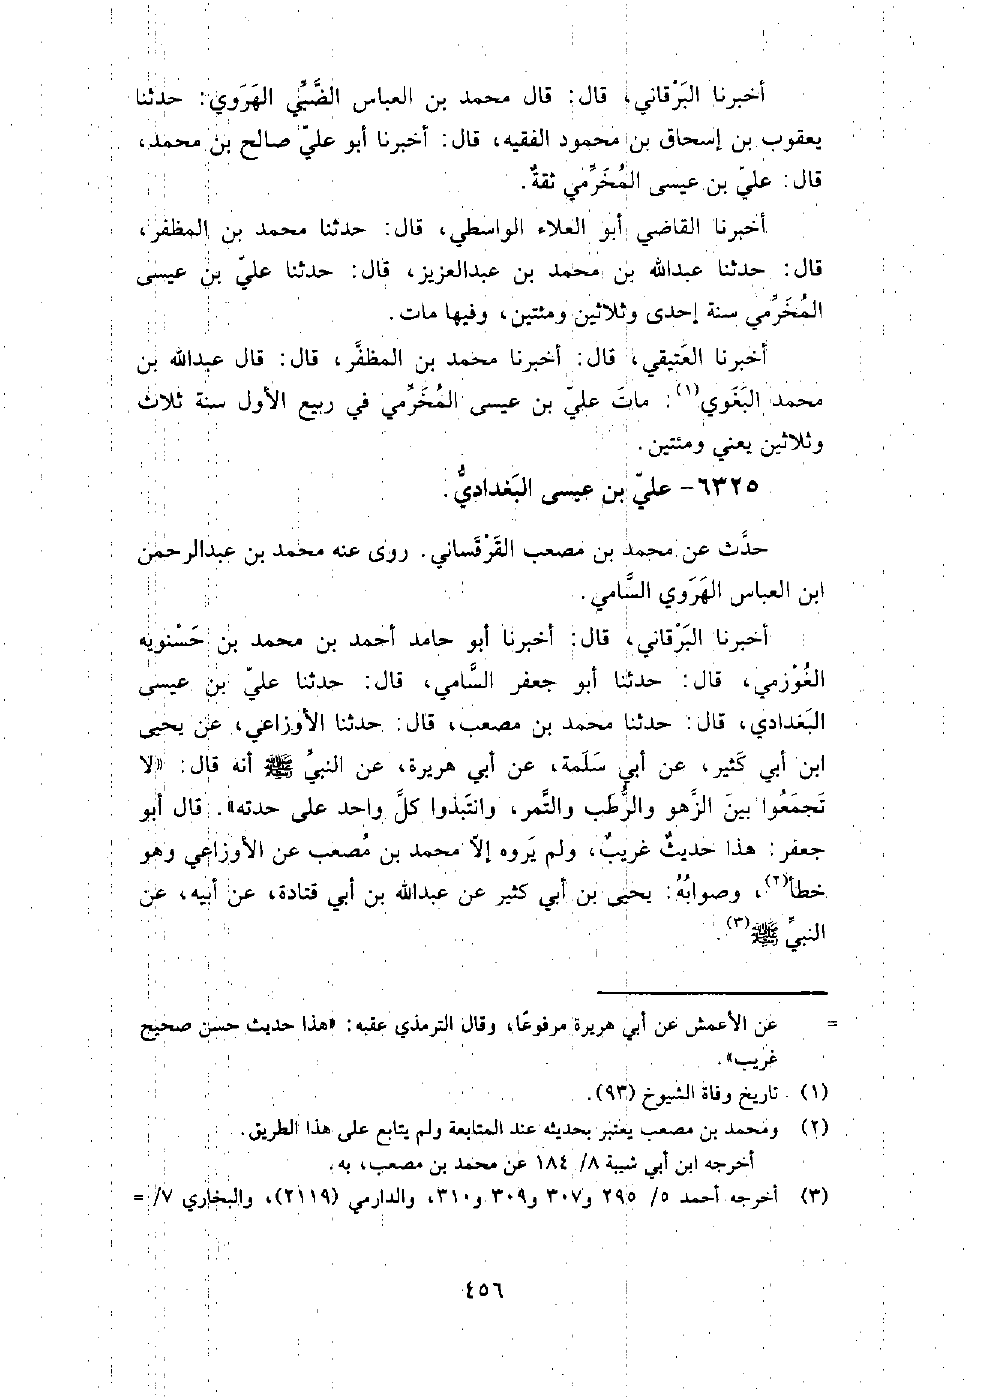 أخبرنا البَرْقاني، قال: قال محمد بن العباس الضَّبِّي الهَرَوي: حدثنا
يعقوب بن إسحاق بن محمود الفقيه، قال: أخبرنا أبو عليّ صالح بن محمد،
قال: عليّ بن عيسى المُخَرِّمي ثقةٌ.
أخبرنا القاضي أبو العلاء الواسطي، قال: حدثنا محمد بن المظفر،
قال: حدثنا عبدالله بن محمد بن عبدالعزيز، قال: حدثنا عليّ بن عيسى
المُخَرِّمي سنة إحدى وثلاثين ومئتين، وفيها مات.
أخبرنا العَتيقي، قال: أخبرنا محمد بن المظفَّر، قال: قال عبدالله بن
محمد البَغَوي(١): ماتَ عليّ بن عيسى المُخَرِّمي في ربيع الأول سنة ثلاث
وثلاثين يعني ومئتين.
٦٣٢٥- عليّ بن عيسى البَغداديُّ.
حدَّث عن محمد بن مصعب القَرْقَساني. روى عنه محمد بن عبدالرحمن
ابن العباس الهَرَوي السَّامي.
أخبرنا البَرْقاني، قال: أخبرنا أبو حامد أحمد بن محمد بن حَسْنويه
الغُوْزمي، قال: حدثنا أبو جعفر السَّامي، قال: حدثنا عليّ بن عيسى
البَغدادي، قال: حدثنا محمد بن مصعب، قال: حدثنا الأوزاعي، عن يحيى
ابن أبي كَثير، عن أبي سَلَمة، عن أبي هريرة، عن النبيِّ ﷺ أنه قال: «لا
تَجمَعُوا بينَ الزَّهو والرُّطَب والتَّمر، وانتَبذوا كلَّ واحد على حدته». قال أبو
جعفر: هذا حديثٌ غريبٌ، ولم يَروه إلاّ محمد بن مُصعب عن الأوزاعي وهو
خطأ(٢)، وصوابُهُ: يحيى بن أبي كثير عن عبدالله بن أبي قتادة، عن أبيه، عن
النبيِّ ﷺ(٣).
= عن الأعمش عن أبي هريرة مرفوعًا، وقال الترمذي عقبه: «هذا حديث حسن صحيح
غريب».
(١) تاريخ وفاة الشيوخ (٩٣).
(٢) ومحمد بن مصعب يعتبر بحديثه عند المتابعة ولم يتابع على هذا الطريق.
أخرجه ابن أبي شيبة ٨/ ١٨٤ عن محمد بن مصعب، به.
(٣) أخرجه أحمد ٥/ ٢٩٥ و٣٠٧ و٣٠٩ و٣١٠، والدارمي (٢١١٩)، والبخاري ٧/ =
٤٥٦